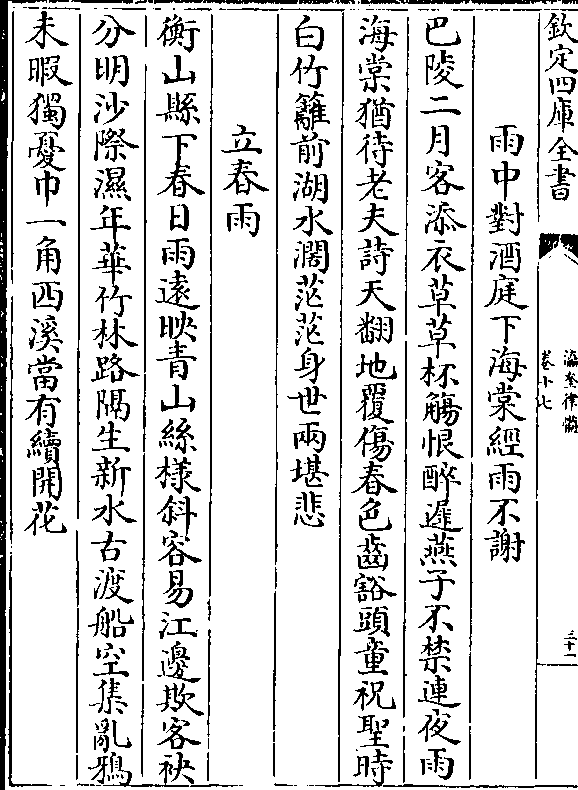 欽定四庫全書
瀛奎律髓
卷十七
三十一
雨中對酒庭下海棠經雨不謝
巴陵二月客添衣草草杯觴恨醉遲燕子不禁連夜雨
海棠猶待老夫詩天翻地覆傷春色齒豁頭童祝聖時
白竹籬前湖水濶茫茫身世兩堪悲
立春雨
衡山縣下春日雨遠映青山絲樣斜容易江邊欺客袂
分明沙際濕年華竹林路隔生新水古渡船空集亂鴉
未暇獨憂巾一角西溪當有續開花